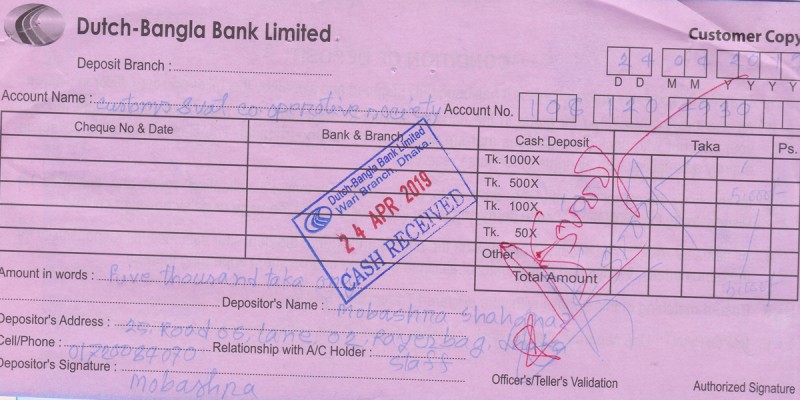 Dutch-Bangla Bank Limited
Customer Copy
Deposit Branch :
24 04 2019
D D M M Y Y Y Y
Account Name : customs & vat co-operative society Account No. 108 120 2930
Cheque No & Date Bank & Branch Cash: Deposit Taka Ps.
Tk. 1000X
Tk. 500X
Tk. 100X
Tk. 50X
Other
Total Amount
5000/
Dutch-Bangla Bank Limited
Wari Branch, Dhaka.
24 APR 2019
CASH RECEIVED
Amount in words : Five thousand taka
Depositor's Name : Mobashra Shahanaz
Depositor's Address : 25, Road 05, lane 02,
Cell/Phone : 01720084070 Relationship with A/C Holder : Staff
Depositor's Signature : Mobashra
Officer's/Teller's Validation
Authorized Signature